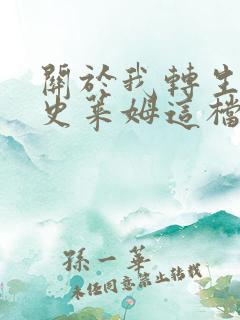 關於我轉生
史萊姆這檔
孫一華
未經同意禁止轉載